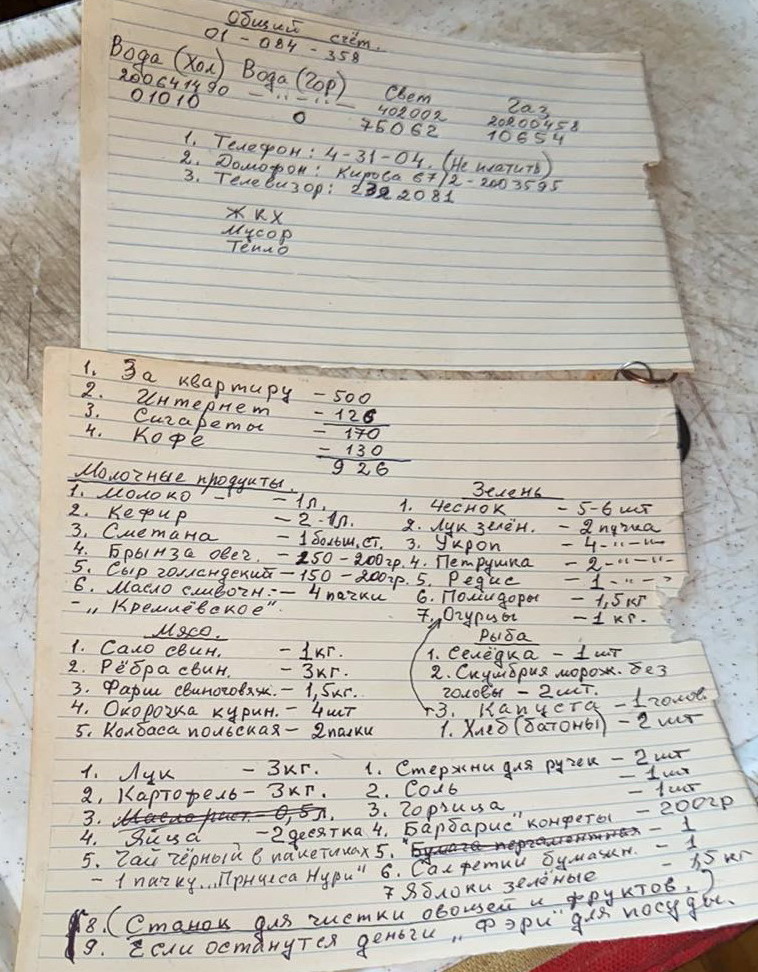 Общий счёт.
01 - 084 - 358
Вода (Хол) Вода (Гор) Свет Газ
200641490 - " - " - 402002 20200458
01010 0 75062 10654
1. Телефон: 4-31-04. (Не платить)
2. Домофон: Кирова 67/2 - 2003595
3. Телевизор: 2322081
ЖКХ
Мусор
Тепло
1. За квартиру - 500
2. Интернет - 126
3. Сигареты - 170
4. Кофе - 130
926
Молочные продукты.
1. Молоко - - 1л.
2. Кефир - 2-1л.
3. Сметана - 1 больш. ст.
4. Брынза овеч. - 250-200гр.
5. Сыр голландский - 150-200гр.
6. Масло сливочн. - 4 пачки
- „Кремлёвское".
Зелень
1. Чеснок - 5-6 шт
2. Лук зелён. - 2 пучка
3. Укроп - 4 - " - " -
4. Петрушка - 2 - " - " -
5. Редис - 1 - " - "
6. Помидоры - 1,5 кг
7. Огурцы - 1 кг.
Мясо.
1. Сало свин. - 1кг.
2. Рёбра свин. - 3кг.
3. Фарш свиноговяж. - 1,5кг.
4. Окорочка курин. - 4шт
5. Колбаса польская - 2палки
Рыба
1. Селёдка - 1 шт
2. Скумбрия морож. без
головы - 2шт.
3. Капуста - 1 голов.
1. Хлеб (батоны) - 2 шт
1. Лук - 3кг.
2. Картофель - 3кг.
3. Масло раст. - 0,5л.
4. Яйца - 2 десятка
5. Чай чёрный в пакетиках
- 1 пачку „Принцеса Нури"
1. Стержни для ручек - 2 шт
2. Соль - 1шт
3. Горчица - 1шт
4. Барбарис" конфеты - 200гр
5. "Бумага пергаментная - 1
6. Салфетки бумажн. - 1
7 Яблоки зелёные - 1,5 кг
8. (Станок для чистки овощей и фруктов.)
9. Если останутся деньги „Фэри" для посуды.